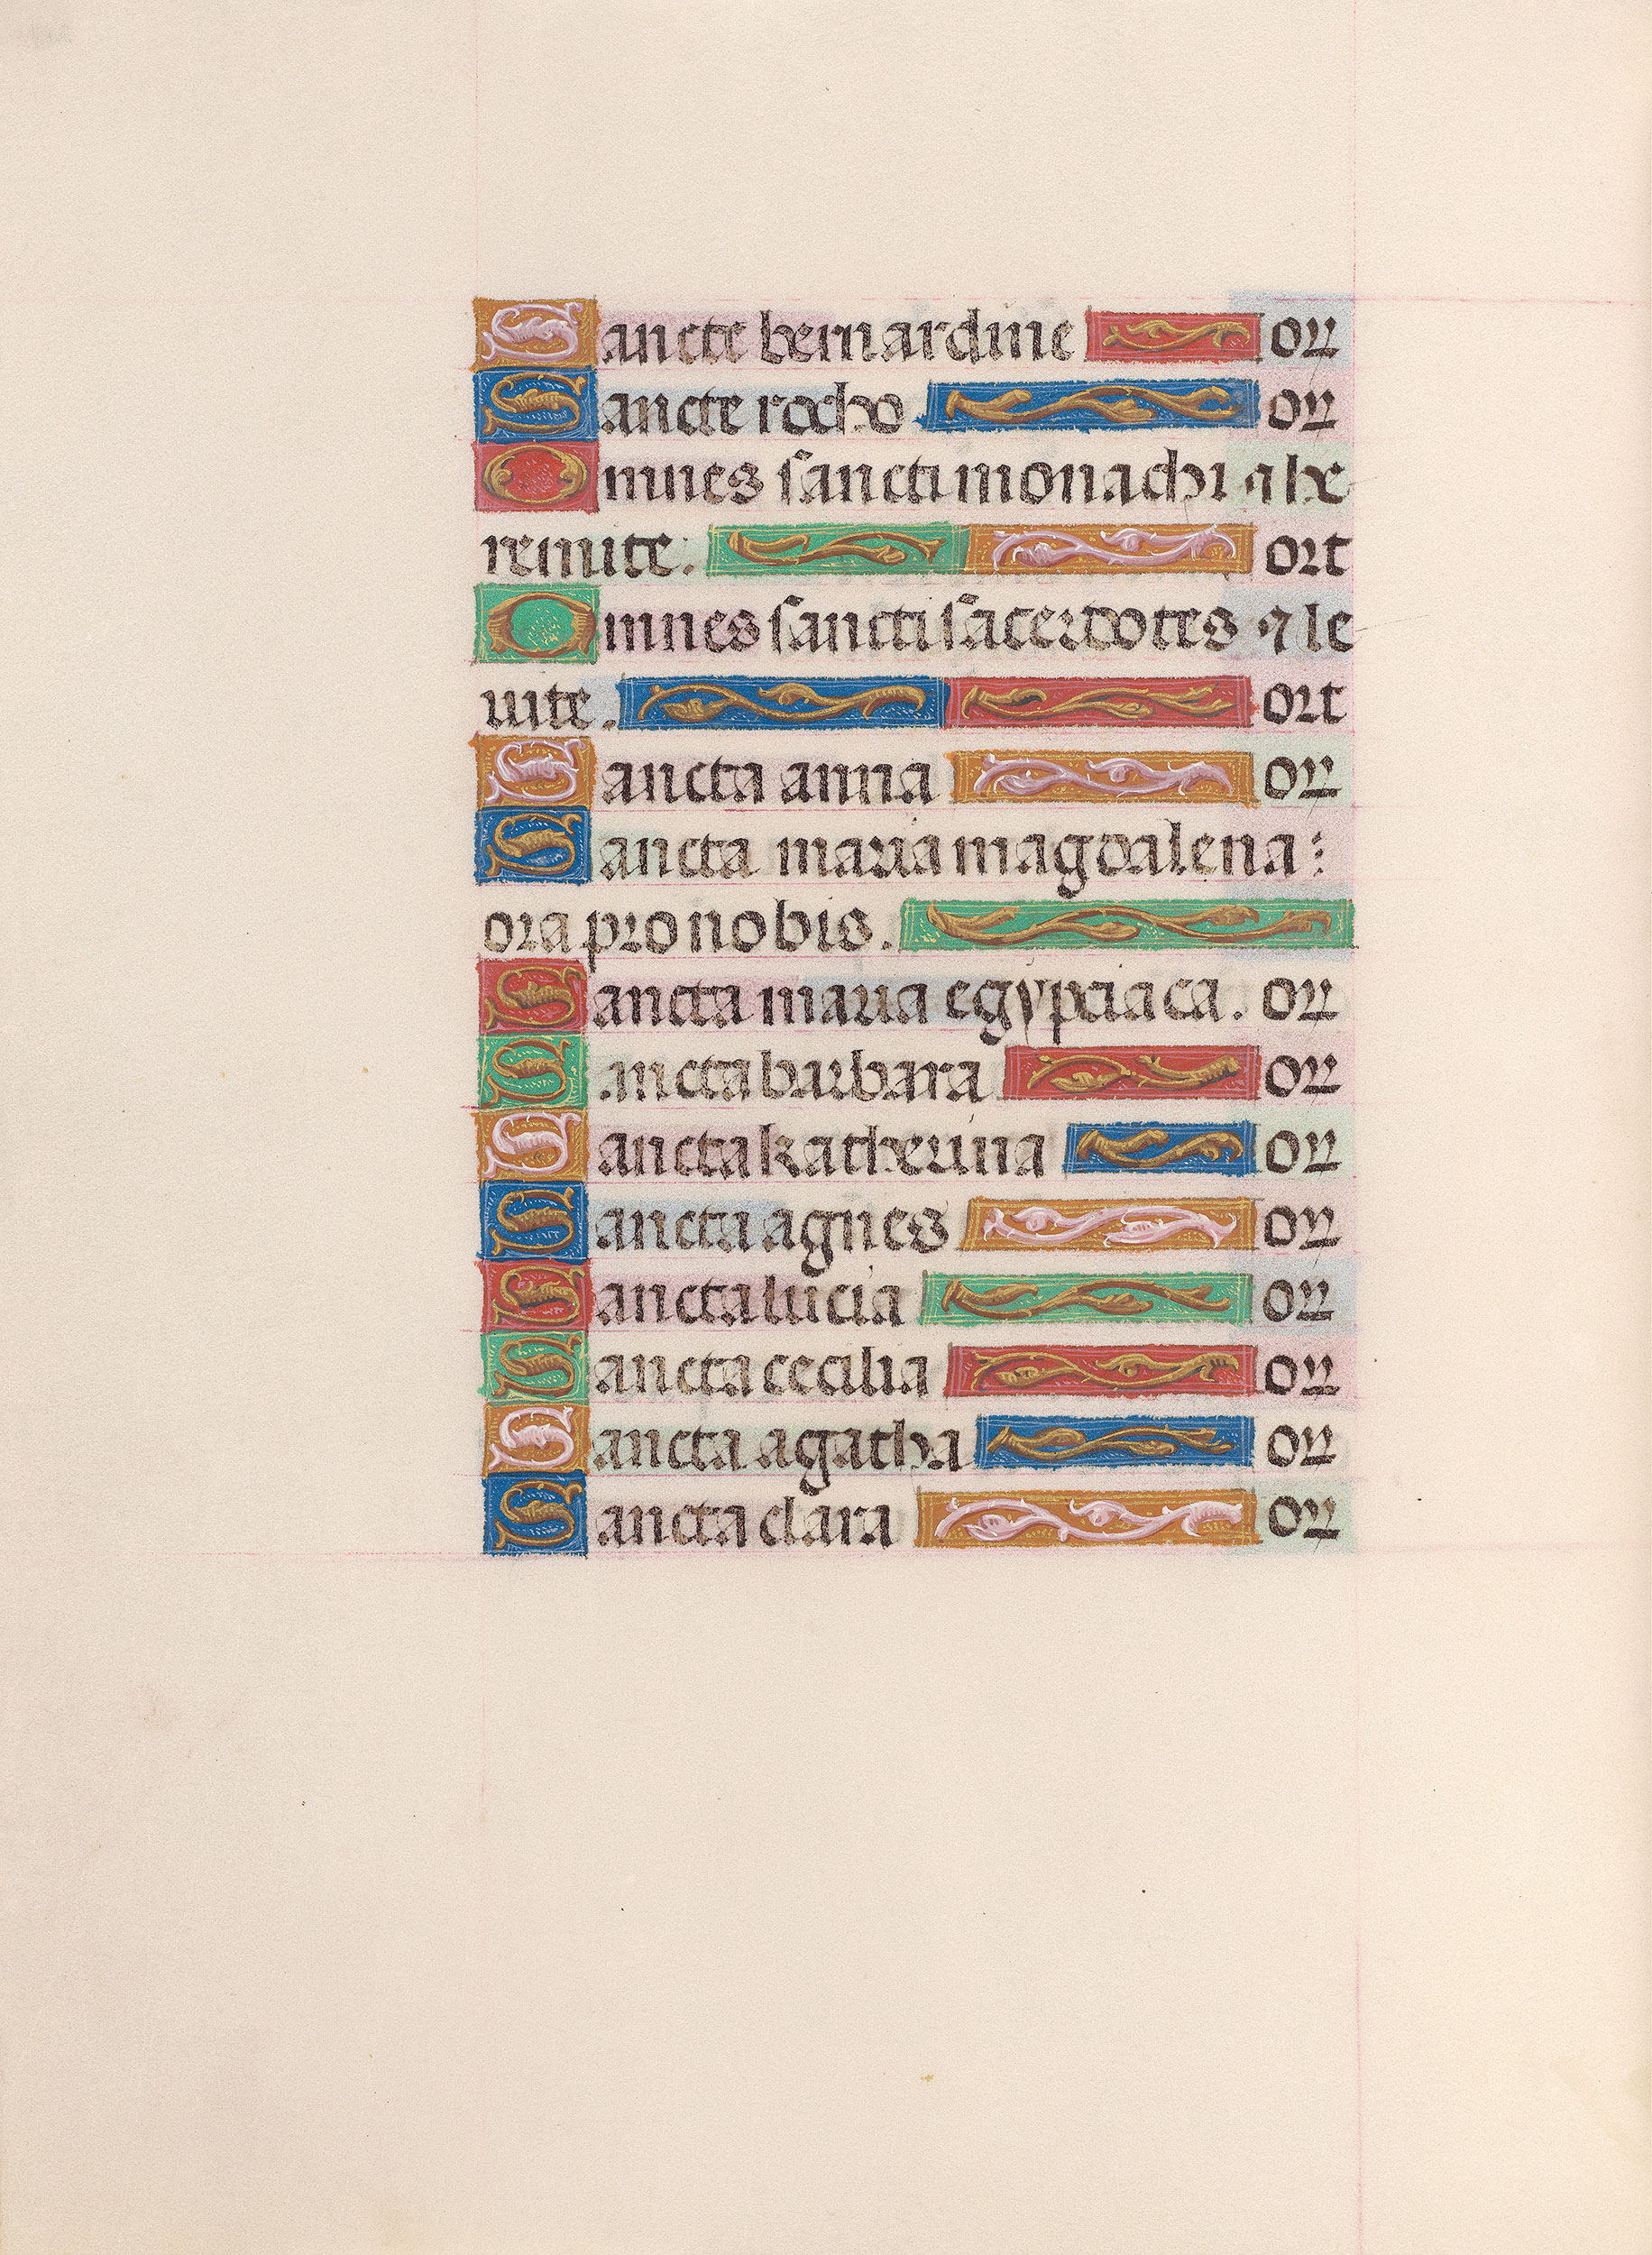 Sancte bernardine or
Sancte rocho or
Omnes sancti monachi ⁊ he
remite. ort
Omnes sancti sacerdotes ⁊ le
uite. ort
Sancta anna or
Sancta maria magdalena:
ora pro nobis.
Sancta maria egypciaca. or
Sancta barbara or
Sancta katherina or
Sancta agnes or
Sancta lucia or
Sancta cecilia or
Sancta agatha or
Sancta clara or